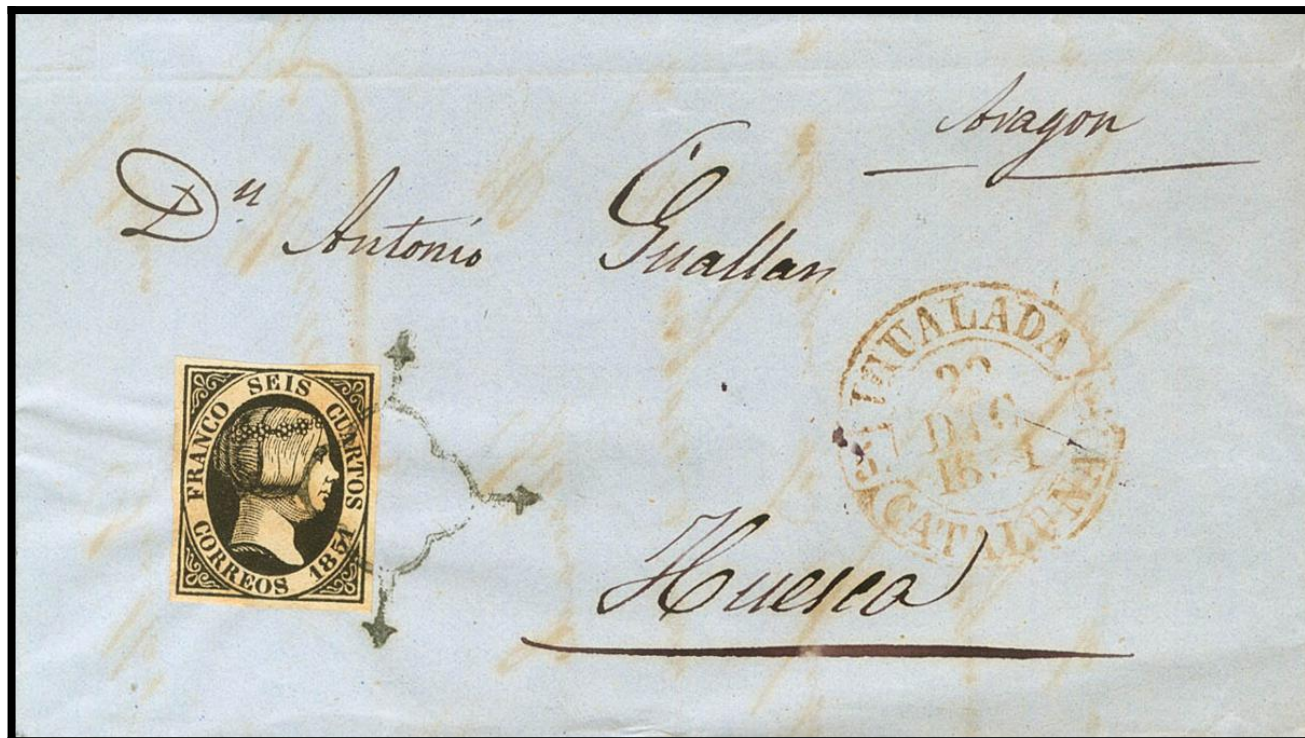 Aragon
Dn Antonio Guallan
FRANCO SEIS CUARTOS
CORREOS 1851
IGUALADA
22
DIC
1851
CATALUÑA
Huesca